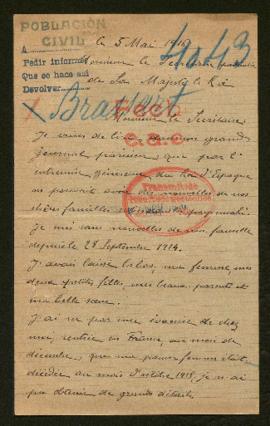 POBLACIÓN
CIVIL
A
Pedir informes
Que se hace aquí
Devolver
le 5 Mai 191
4043
Monsieur le Secrétaire
de Sa Majesté le Roi
Monsieur le Secrétaire
Je viens de lire dans un grand
journal parisien que par l'
entremise généreuse du Roi d'Espagne
on pouvait avoir des nouvelles de nos
chères familles
Je suis sans nouvelles de ma famille
depuis le 28 Septembre 1914.
J'avais laissé là-bas, ma femme, mes
deux petites filles, mes beaux-parents et
ma belle sœur.
J'ai su par une évacuée de chez
moi, rentrée en France, au mois de
décembre, que ma pauvre femme était
décédée au mois d'octobre 1915, je n'ai
pu obtenir de grands détails